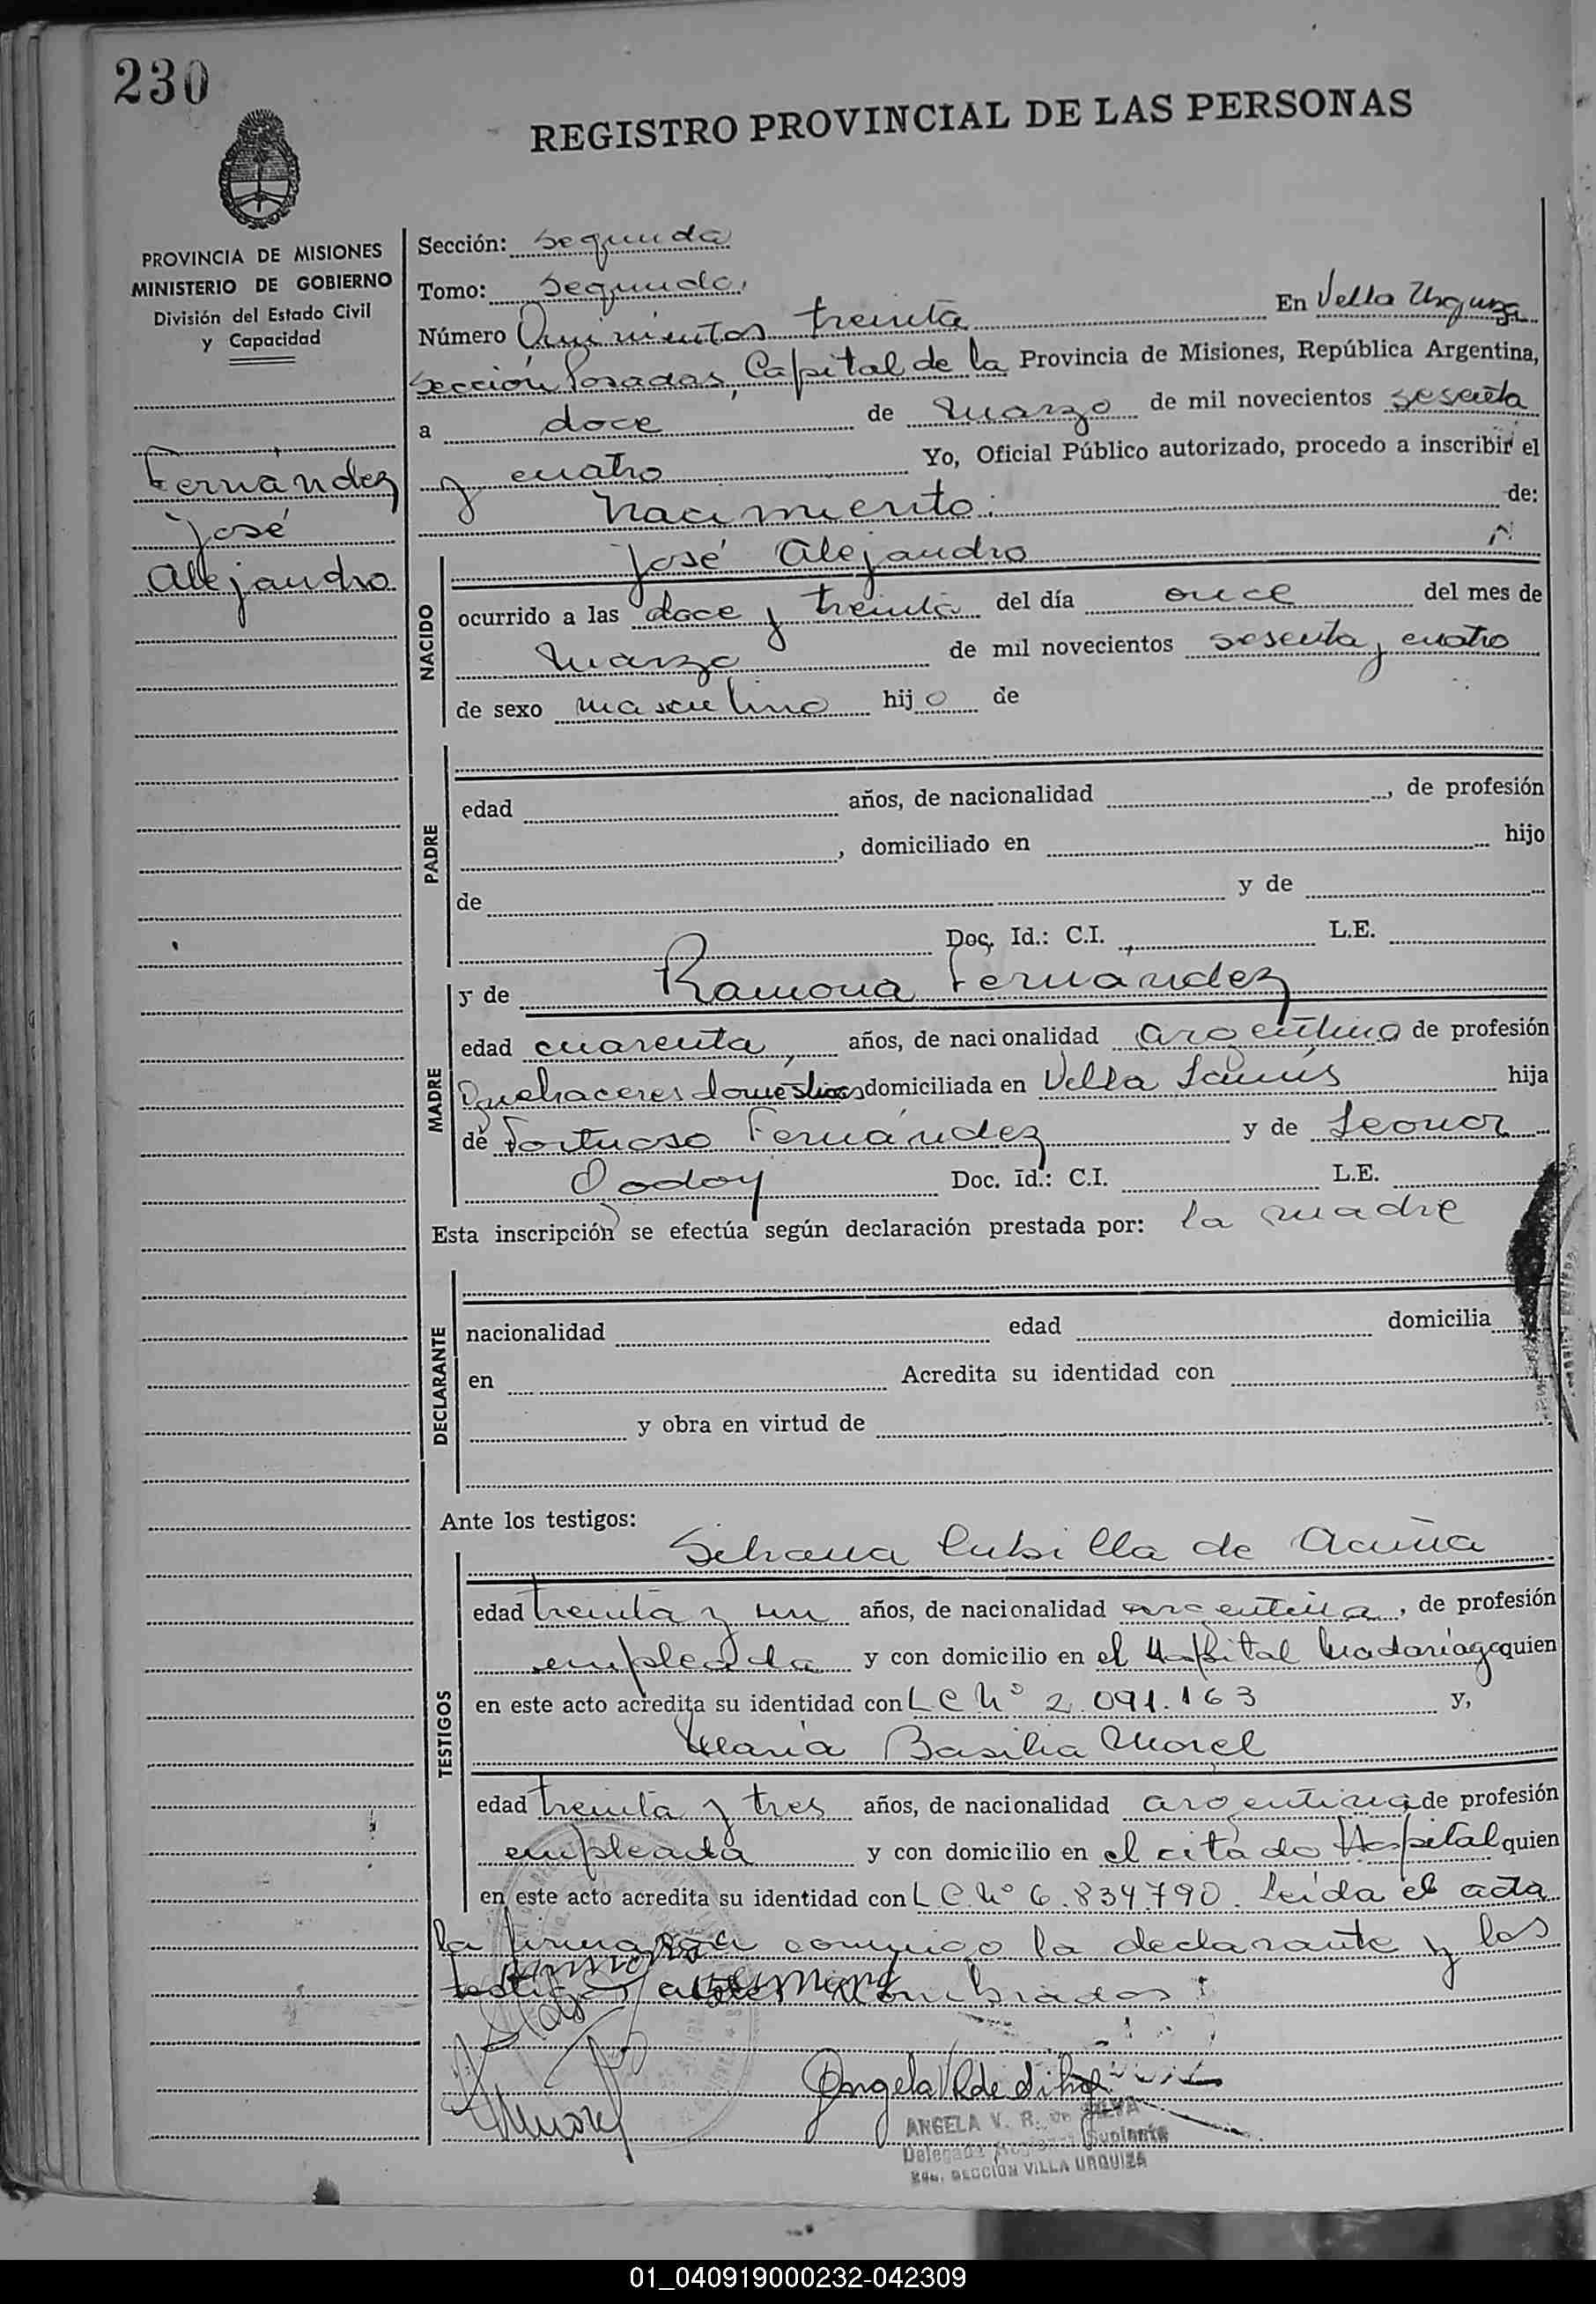 230
REGISTRO PROVINCIAL DE LAS PERSONAS
PROVINCIA DE MISIONES
MINISTERIO DE GOBIERNO
División del Estado Civil
y Capacidad
Fernández
José
Alejandro
Sección: Segunda
Tomo: Segundo.
Número Quinientos treinta En Villa Urquiza
Sección Posadas, Capital de la Provincia de Misiones, República Argentina,
a doce de Marzo de mil novecientos sesenta
y cuatro Yo, Oficial Público autorizado, procedo a inscribir el
Nacimiento. de:
NACIDO
José Alejandro
ocurrido a las doce y treinta del día once del mes de
Marzo de mil novecientos sesenta y cuatro
de sexo masculino hijo de
PADRE
edad años, de nacionalidad , de profesión
, domiciliado en hijo
de y de
Doc. Id.: C.I. L.E.
MADRE
y de Ramona Fernández
edad cuarenta, años, de nacionalidad argentina de profesión
Quehaceres domésticos domiciliada en Villa Lanús hija
de Fortunoso Fernández y de Leonor
Godoy Doc. Id.: C.I. L.E.
Esta inscripción se efectúa según declaración prestada por: la madre
DECLARANTE
nacionalidad edad domicilia
en Acredita su identidad con
y obra en virtud de
Ante los testigos:
TESTIGOS
Cubilla de Acuña
edad treinta y un años, de nacionalidad argentina, de profesión
empleada y con domicilio en el Hospital Madariaga quien
en este acto acredita su identidad con L C Nº 2.091.163 y,
María Basilia Morel
edad treinta y tres años, de nacionalidad argentina de profesión
empleada y con domicilio en el citado Hospital quien
en este acto acredita su identidad con L.C.Nº 6.834.790. Leída el acta
la firman conmigo la declarante y los
testigos nombrados
Angela V R de Silva
ANGELA V. R. de SILVA
Delegada Suplente
SECCION VILLA URQUIZA
01_040919000232-042309